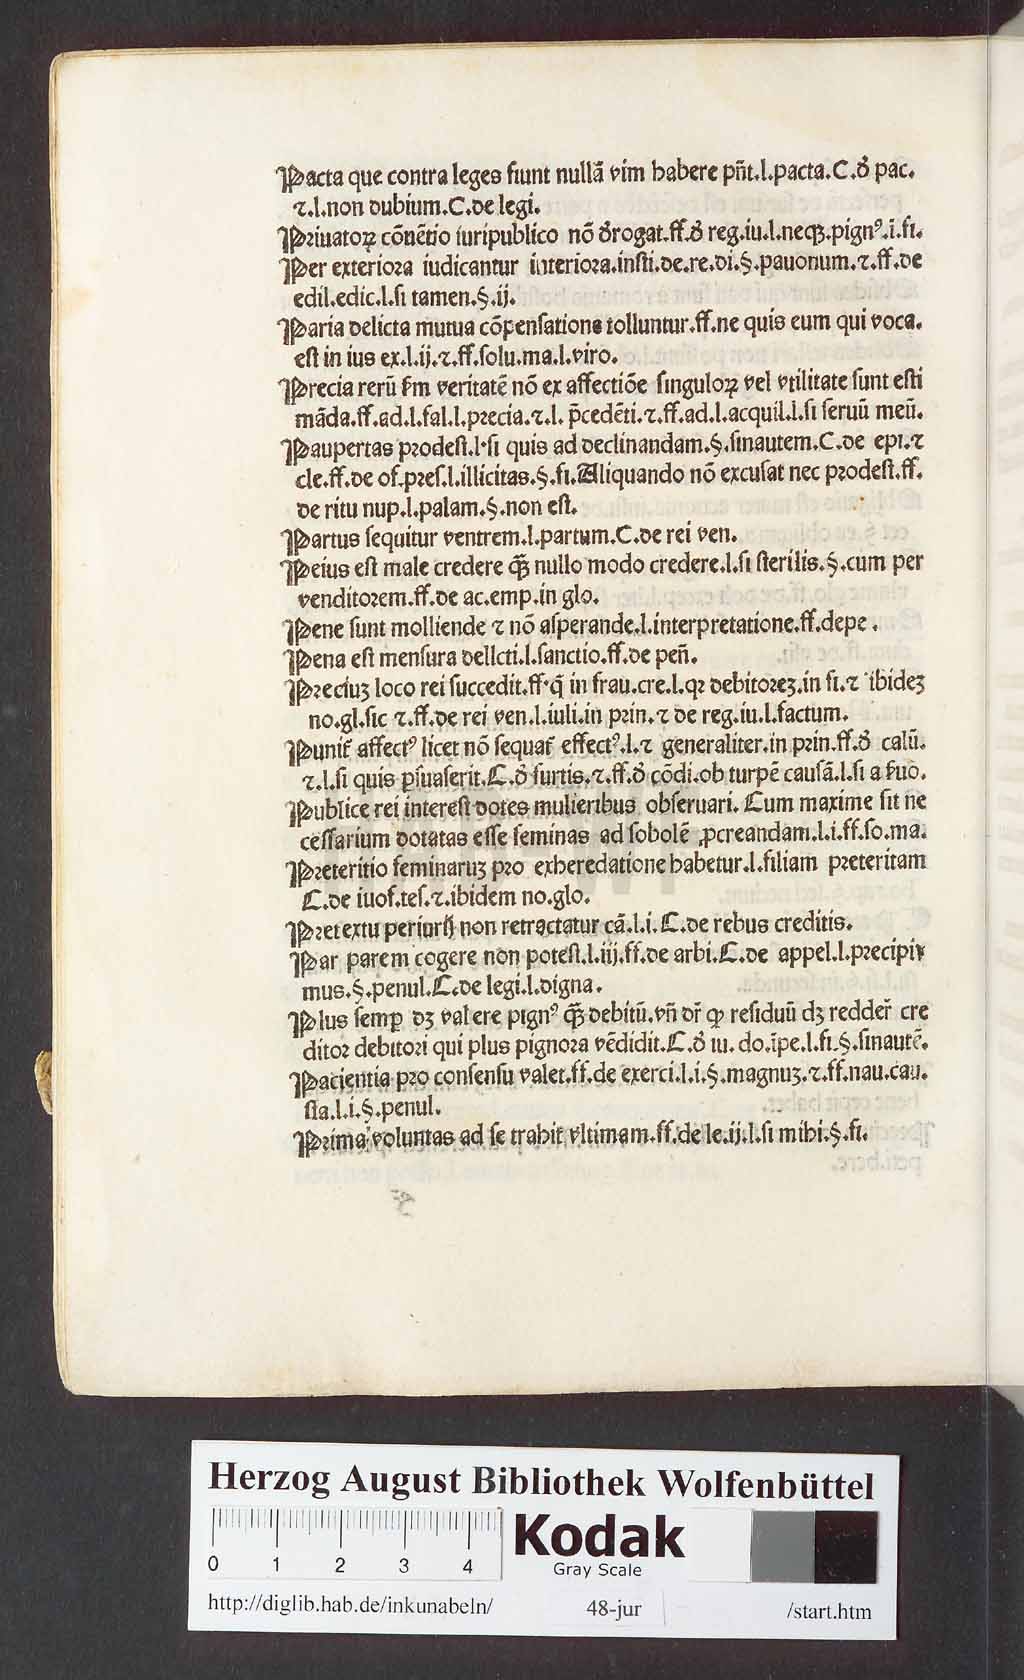 Pacta que contra leges fiunt nullã vim habere pñt.l.pacta.C.ð pac.
⁊.l.non dubium.C.de legi.
Priuatoꝝ cõnẽtio iuripublico nõ ðrogat.ff.ð reg.iu.l.neqꝫ.pignꝰ.ĩ.fi.
Per exteriora iudicantur interiora.insti.de.re.di.§.pauonum.⁊.ff.de
edil.edic.l.si tamen.§.ij.
Paria delicta mutua cõpensatione tolluntur.ff.ne quis eum qui voca.
est in ius ex.l.ij.⁊.ff.solu.ma.l.viro.
Precia rerũ fm veritatẽ nõ ex affectiõe singuloꝝ vel vtilitate sunt esti
mãda.ff.ad.l.fal.l.precia.⁊.l. p̃cedẽti.⁊.ff.ad.l.acquil.l.si seruũ meũ.
Paupertas prodest.l.si quis ad declinandam.§.sinautem.C.de epi.⁊
cle.ff.de of.pres.l.illicitas.§.fi.Aliquando nõ excusat nec prodest.ff.
de ritu nup.l.palam.§.non est.
Partus sequitur ventrem.l.partum.C.de rei ven.
Peius est male credere q̃ꝫ nullo modo credere.l.si sterilis.§.cum per
venditorem.ff.de ac.emp.in glo.
Pene sunt molliende ⁊ nõ asperande.l.interpretatione.ff.depe.
Pena est mensura dellcti.l.sanctio.ff.de peñ.
Preciuꝫ loco rei succedit.ff.q̃ in frau.cre.l.qꝛ debitoreꝫ.in fi.⁊ ibideꝫ
no.gl.sic ⁊.ff.de rei ven.l.iuli.in prin.⁊ de reg.iu.l.factum.
Punit̃ affectꝰ licet nõ sequat̃ effectꝰ.l.⁊ generaliter.in prin.ff.ð calũ.
⁊.l.si quis ꝑsuaserit.C.ð furtis.⁊.ff.ð cõdi.ob turpẽ causã.l.si a ẽuo.
Publice rei interest dotes mulieribus obseruari. Cum maxime sit ne
cessarium dotatas esse feminas ad sobolẽ ꝓcreandam.l.i.ff.so.ma.
Preteritio feminaruꝫ pro exheredatione habetur.l.filiam preteritam
C.de iuof.tes.⁊.ibidem no.glo.
Pretextu periurij non retractatur cã.l.i.C.de rebus creditis.
Par parem cogere non potest.l.iij.ff.de arbi.C.de appel.l.precipi
mus.§.penul.C.de legi.l.digna.
Plus semꝑ dꝫ valere pignꝰ q̃ꝫ debitũ.vñ dr̃ ꝙ residuũ dꝫ redder̃ cre
ditor debitori qui plus pignora vẽdidit.C.ð iu. do.ĩpe.l.fi.§.sinautẽ.
Pacientia pro consensu valet.ff.de exerci.l.i.§.magnuꝫ.⁊.ff.nau.cau.
sta.l.i.§.penul.
Prima voluntas ad se trahit vltimam.ff.de le.ij.l.si mihi.§.fi.
Herzog August Bibliothek Wolfenbüttel
0 1 2 3 4
Kodak
Gray Scale
http://diglib.hab.de/inkunabeln/ 48-jur /start.htm